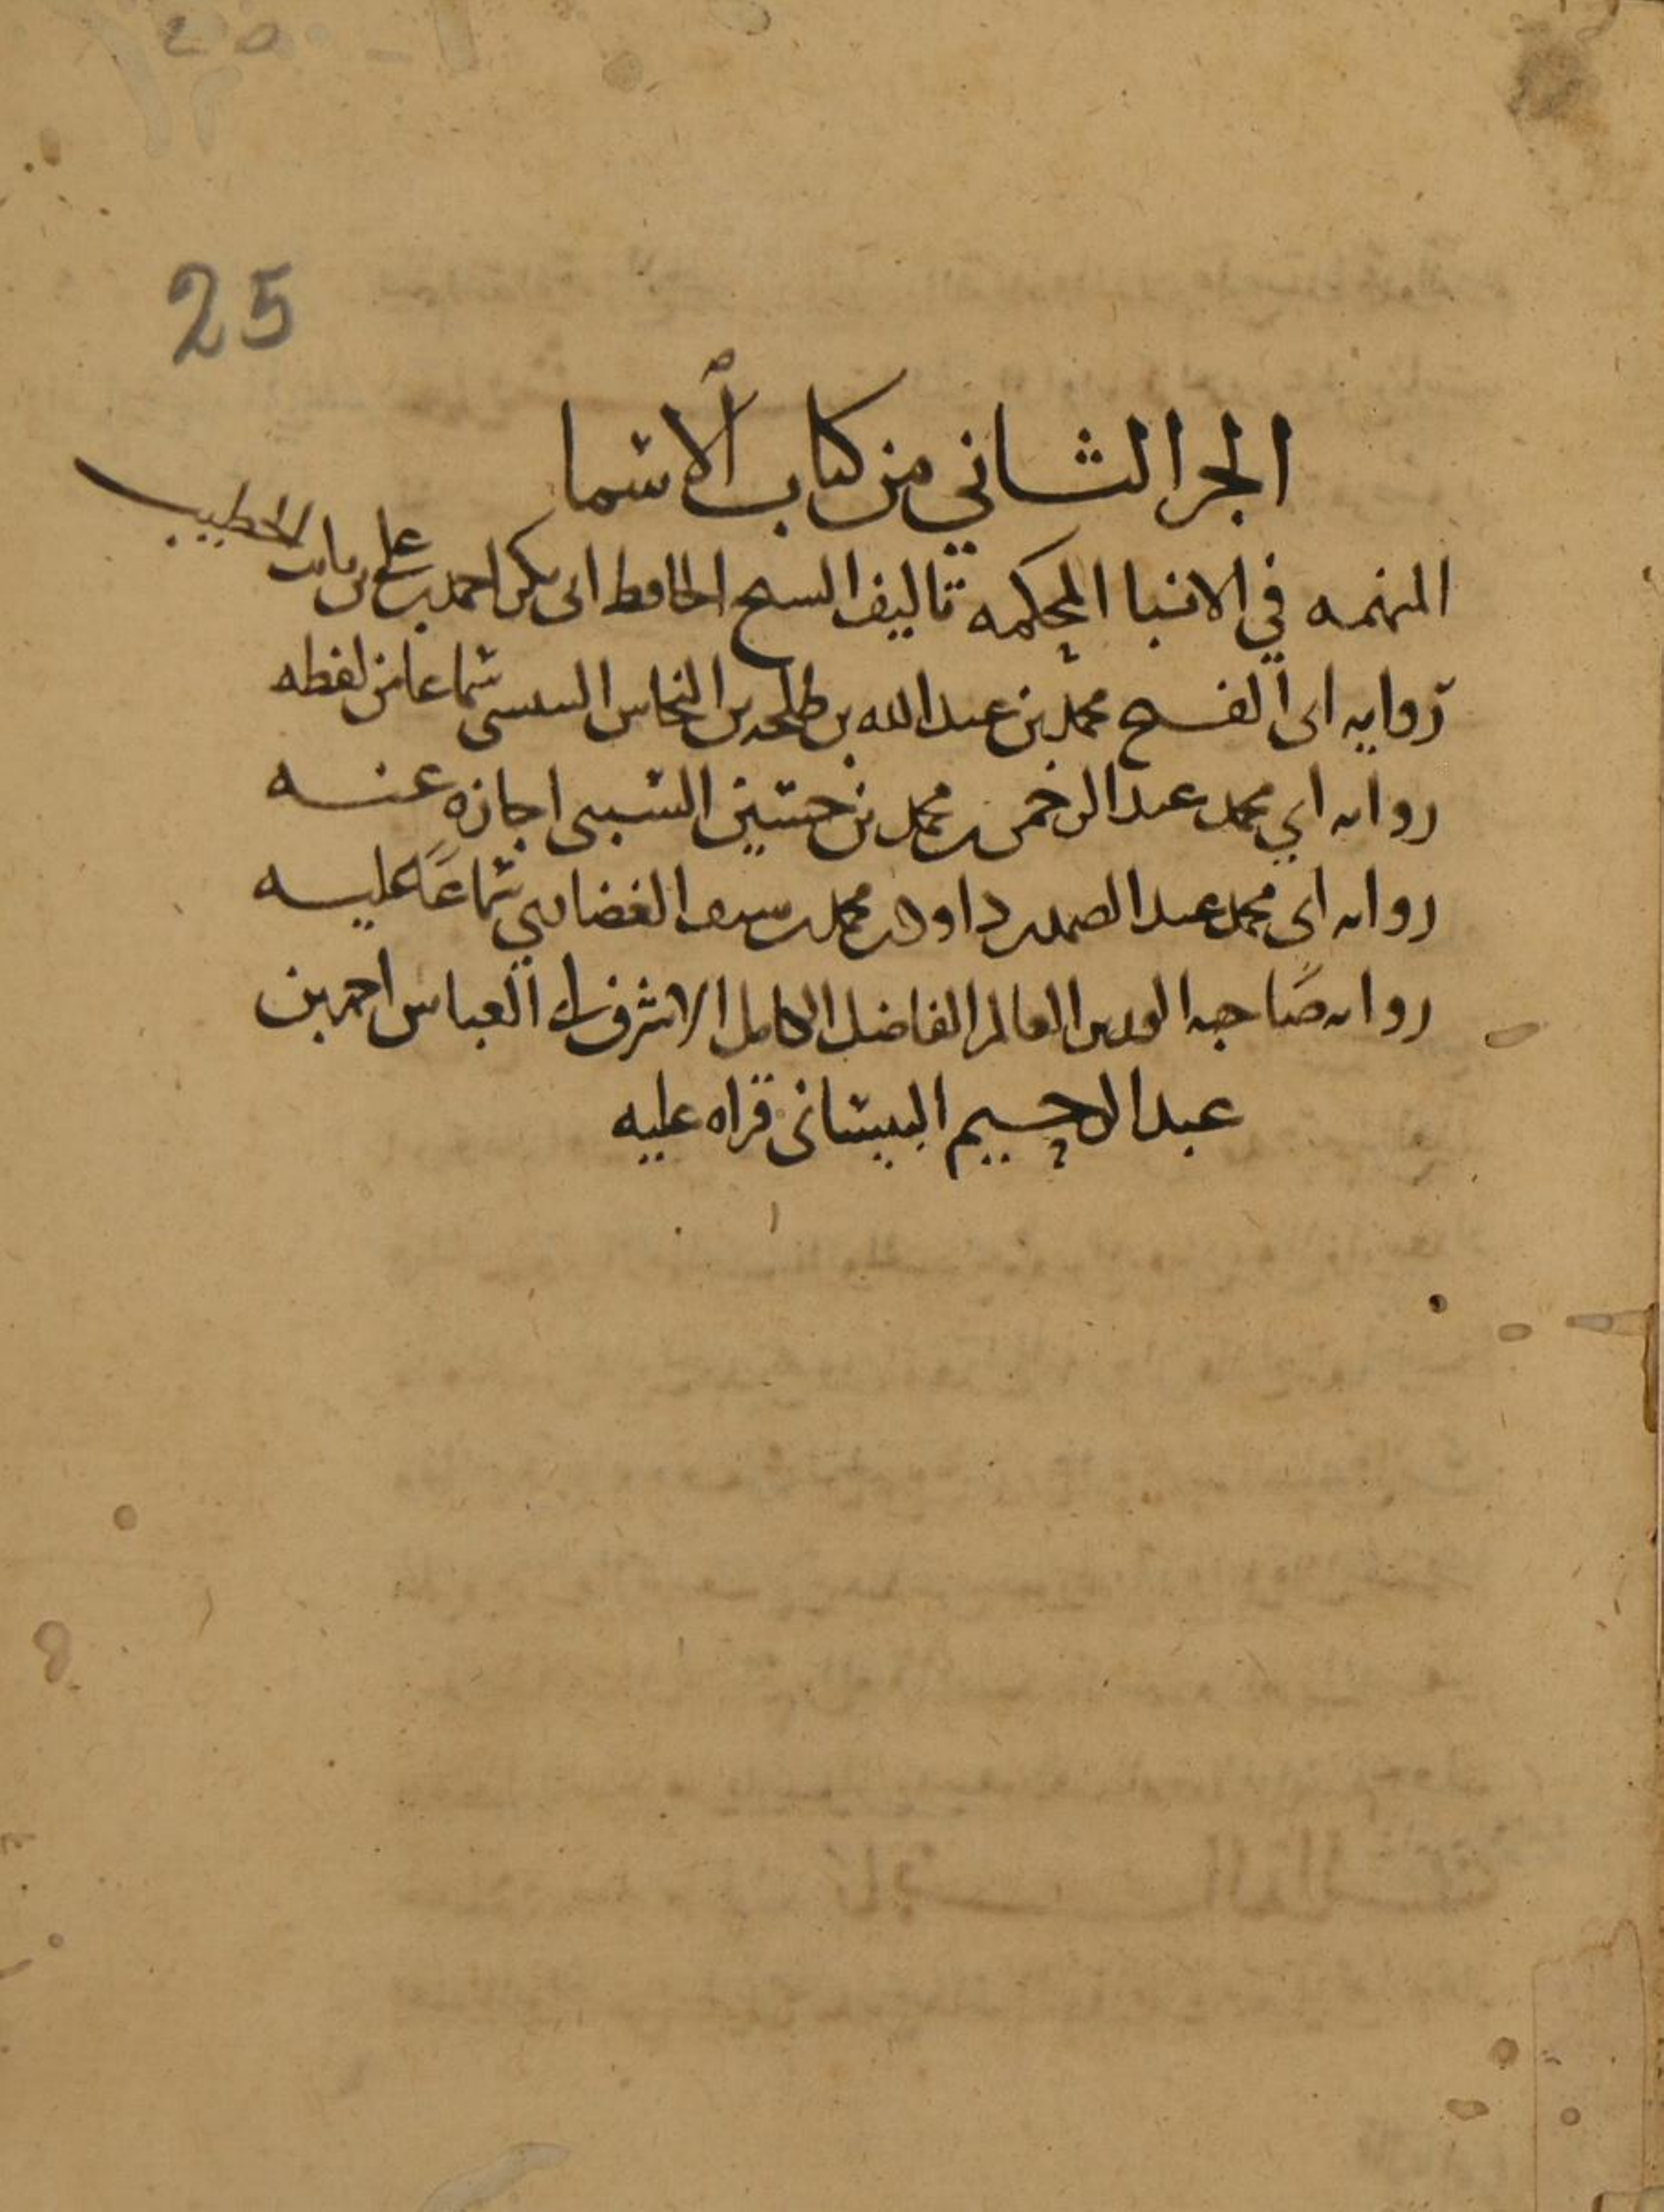 25
الجز الثاني من كتاب الاسما
المبهمه في الانبا المحكمه تاليف الشيخ الحافظ ابى بكر احمد بن علي بن ثابت الخطيب
روايه ابى الفتح محمد بن عبد الله بن طلحه بن النحاس التنيسى سماعا من لفظه
روايه ابي محمد عبد الرحمن بن محمد بن حسين السبيى اجازه عنه
روايه ابى محمد عبد الصمد بن داود بن محمد بن سيف الغضاىري سماعا عليه
روايه صاحبه العالم الفاضل الكامل الاشرف ابى العباس احمد بن
عبد الرحيم البيسانى قراه عليه